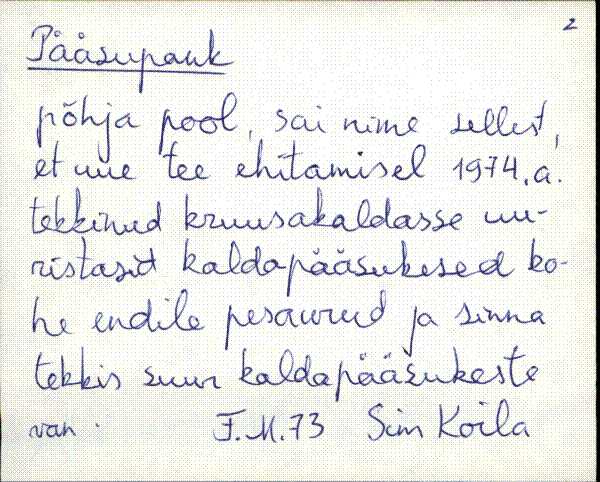 2
Pääsupank
põhja pool, sai nime sellest,
et uue tee ehitamisel 1974.a.
tekkinud kruusakaldasse uu-
ristasid kaldapääsukesed ko-
he endile pesauurud ja sinna
tekkis suur kaldapääsukeste
F.M.73 Siim Koila